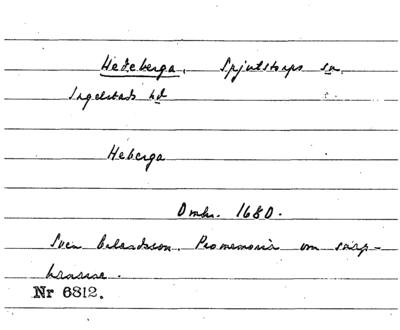 Hedeberga. Spjutstorps sn.
Ingelstads hd
Heberga
Omkr. 1680.
Sven Erlandsson. Promemoria om snap-
hanarne.
Nr 6812.